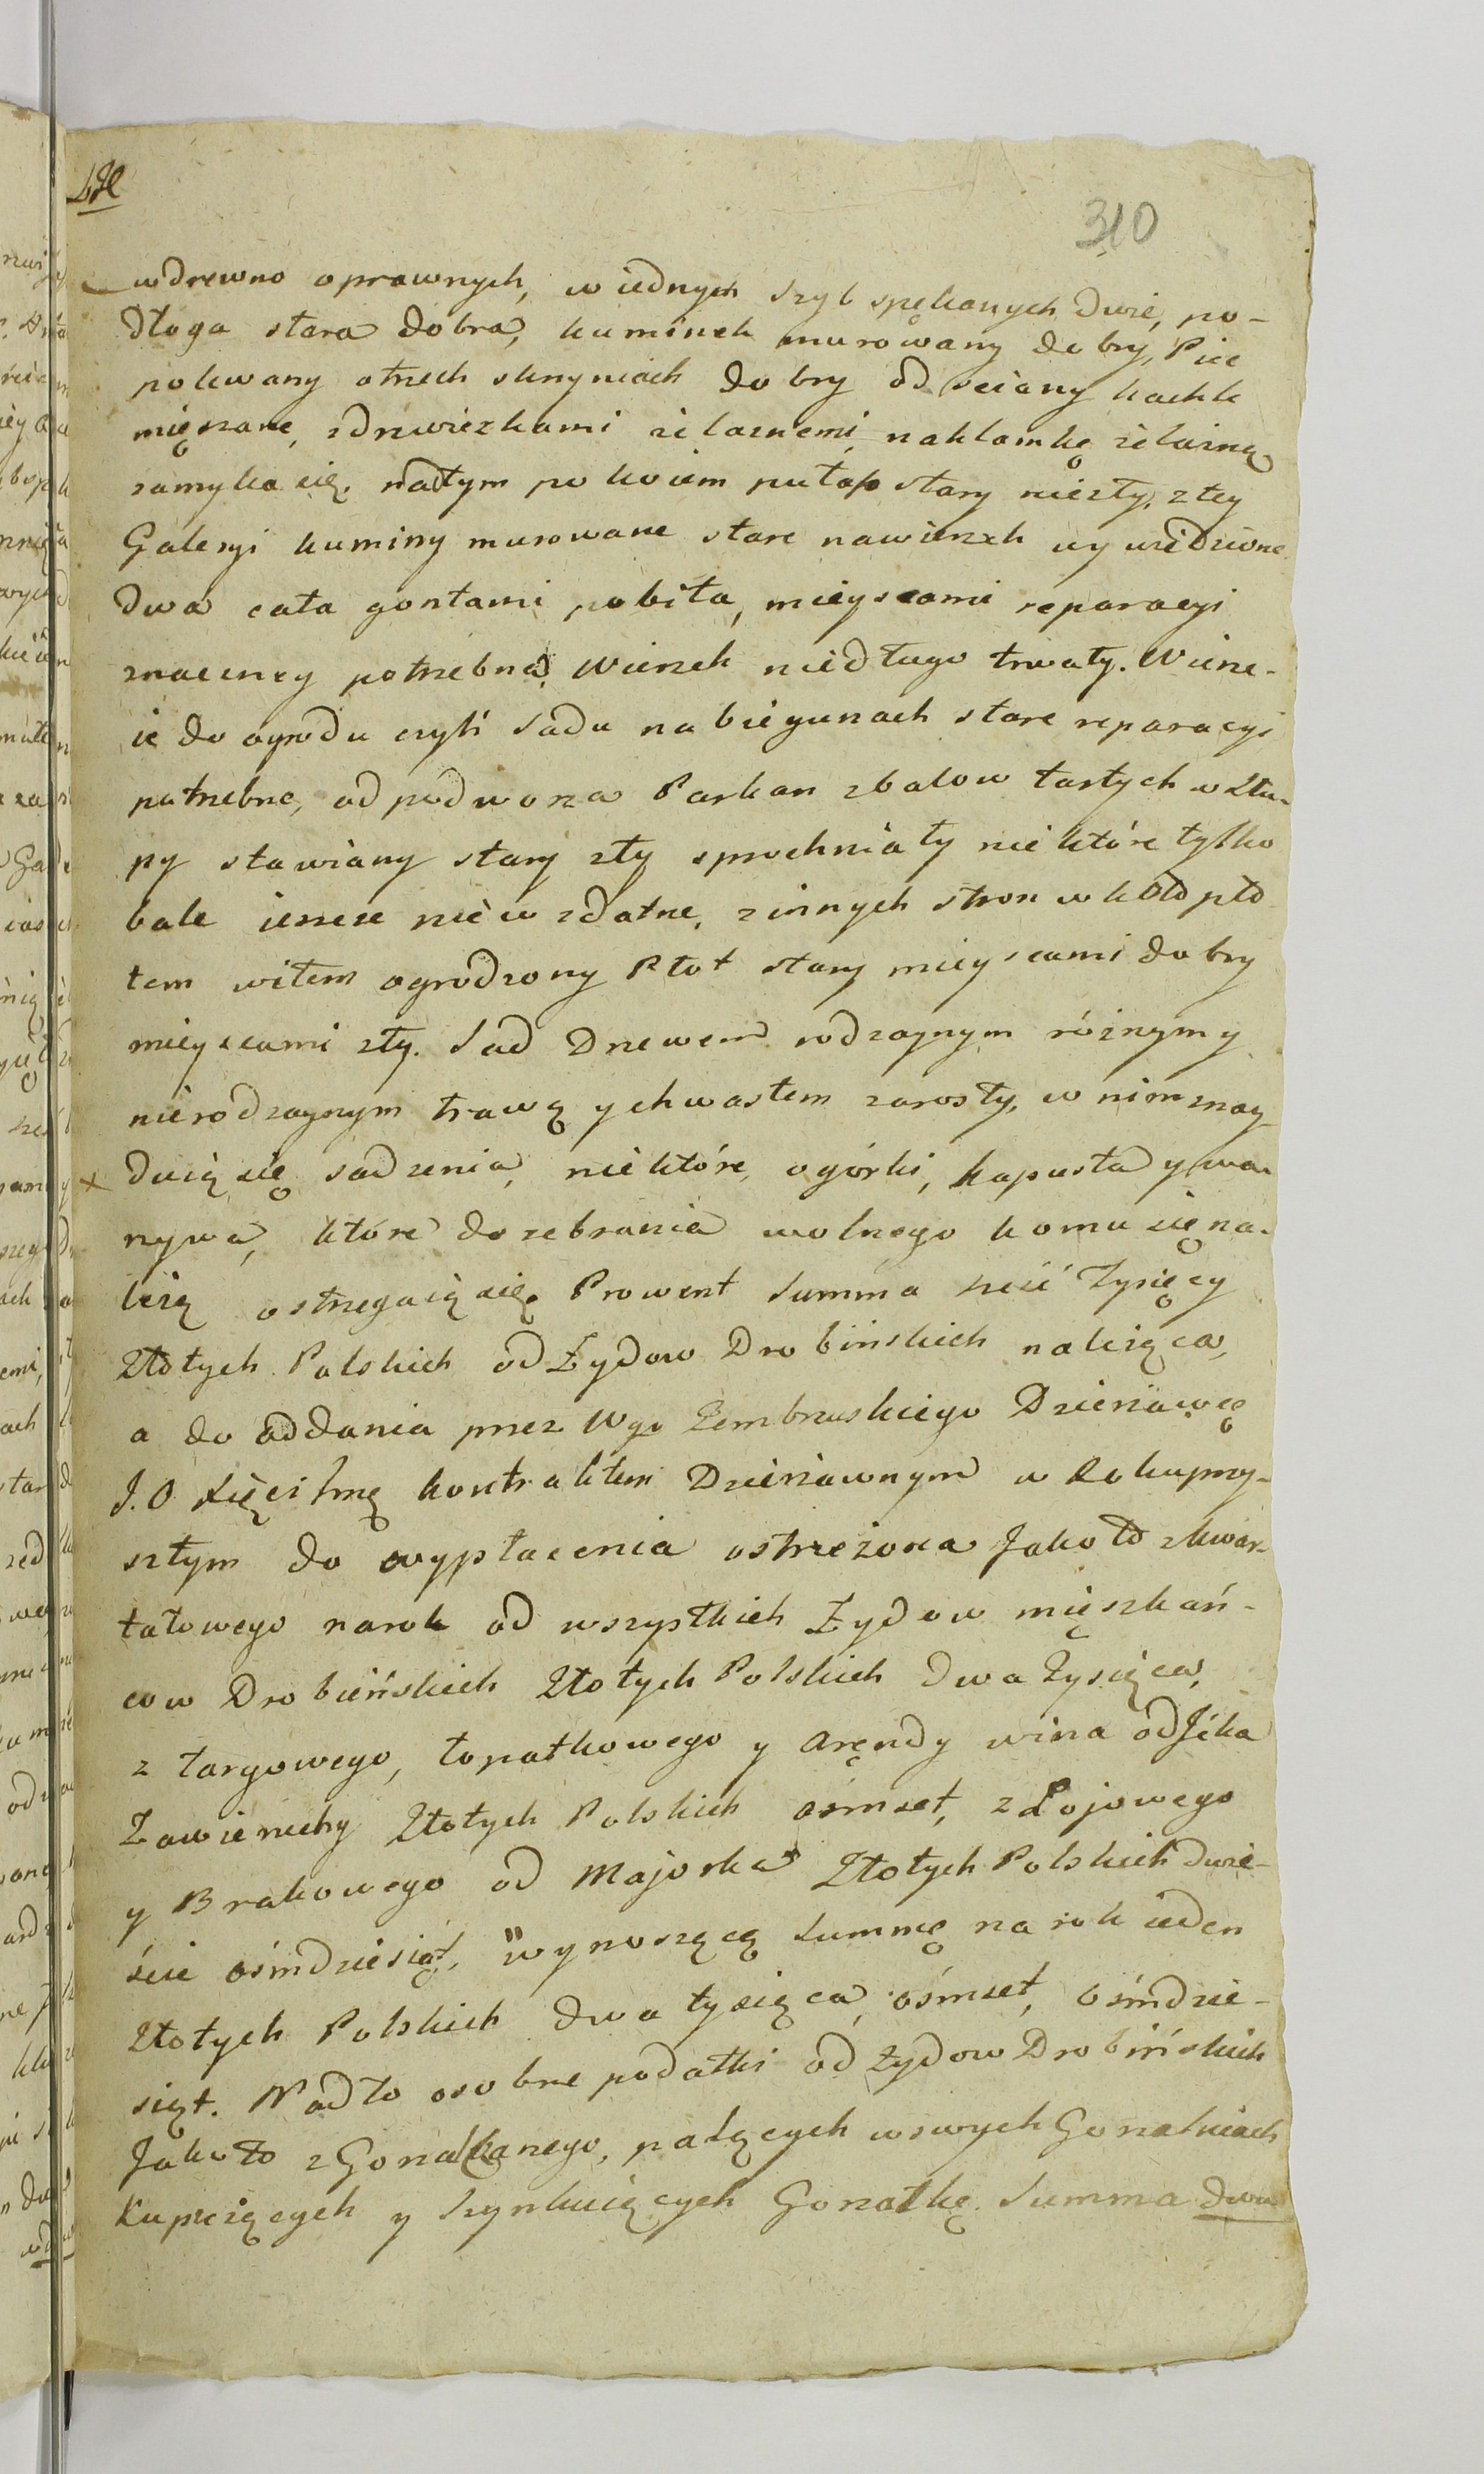 310
w drewno oprawnych, w iednych szyb spękanych dwie, po-
dłoga stara dobra, kuminek murowany dobry, Piec
polewany o trzech skrzyniach dobry od sciany kachle
mięszane, zdrzwiczkami żelaznemi na klamkę żelazną
zamyka się. nad tym pokoiem pułap stary niezły, z tey
Galeryi kuminy murowane stare na wierzch wywiedzione
dwa cała gontami pobita, mieyscami reparacyi
znaczney potrzebna, Wierzch niedługo trwały. Wiere-
ie do ogrodu czyli sadu na biegunach stare reparacyi
potrzebne, od podworza Parkan z balow tartych w słu-
py stawiany stary zły sprochniały niektóre tylko
bale ieszcze nie w zdatne, z innych stron w koło pło
tem witem ogrodzony Płot stary mieyscami dobry
mieyscami zły. Sad Drzewem rodzaynym różnym y
nierodzaynym trawą y chwastem zarosły, w nim znay
duią się sadzenia, niektóre, ogórki, kapusta y wa-
rzywa, które do zebrania wolnego komu się na-
leżą ostrzegaią się. Prowent Summa sześć Tysięcy
Złotych Polskich od Żydow Drobińskich należąca,
a do oddania przez Wgo Zembrzuskiego Dzierżawcę
J.O Xięciu Jmę kontraktem Dzierżawnym w Roku przy-
szłym do wypłacenia ostrzeżona Jako to z kwar-
tałowego na rok od wszystkich Żydow mięszkań-
cow Drobieńskich Złotych Polskich dwa Tysiąca,
z targowego, łopatkowego y Aręndy wina od Jcka
Zawieruchy Złotych Polskich ośmset, z Łojowego
y Brakowego od Majorka Złotych Polskich dwie-
ście ośmdziesiąt, wynoszącą summę na rok ieden
Złotych Polskich dwa tysiąca, ośmset, ośmdzie-
siąt. Nadto osobne podatki od Żydow Drobińskich
Jako to z Gorzałczanego, palących w swych Gorzalniach
Kupczących y Szynkuiących Gorzałkę. Summa dwa